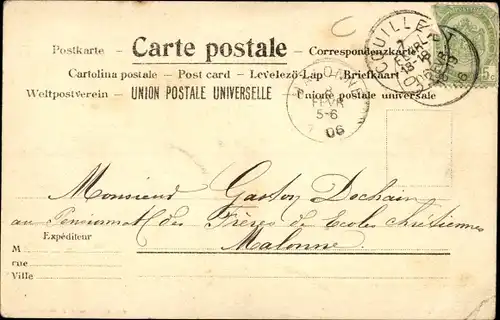 Postkarte — Carte postale — Correspondenzkarte
Cartolina postale – Post card – Levelező-Lap – Briefkaart
Weltpostverein – UNION POSTALE UNIVERSELLE – Unione postale universale
FEVR
5-6
06
5c
Monsieur Gaston Dechain
au Pensionnat des Frères des Ecoles chrétiennes
Malonne
Expéditeur
M
rue
Ville